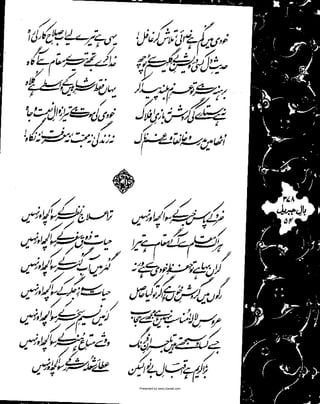 خودی میں گم ہے خدائی تلاش کر غافل یہی ہے تیرے لیے اب صلاحِ کار کی راہ
حدیثِ دل کسی درویشِ بے گلیم سے پوچھ خدا کرے تجھے تیرے مقام سے آگاہ
برہنہ سر ہے تو عزمِ بلند پیدا کر یہاں فقط سرِ شاہیں کے واسطے ہے کلاہ
نہ ہے ستارے کی گردش نہ بازیِ افلاک خودی کی موت ہے تیرا زوالِ نعمت و جاہ
اٹھا میں مدرسہ و خانقاہ سے غمناک نہ زندگی نہ محبت نہ معرفت نہ نگاہ
خرد کے پاس خبر کے سوا کچھ اور نہیں ترا علاج نظر کے سوا کچھ اور نہیں
ہر اک مقام سے آگے مقام ہے تیرا حیات ذوقِ سفر کے سوا کچھ اور نہیں
گراں بہا ہے تو حفظِ خودی سے ہے ورنہ گہر میں آبِ گہر کے سوا کچھ اور نہیں
رگوں میں گردشِ خوں ہے اگر تو کیا حاصل حیات سوزِ جگر کے سوا کچھ اور نہیں
عروسِ لالہ مناسب نہیں ہے مجھ سے حجاب کہ میں نسیمِ سحر کے سوا کچھ اور نہیں
جسے کساد سمجھتے ہیں تاجرانِ فرنگ وہ شے متاعِ ہنر کے سوا کچھ اور نہیں
بڑا کریم ہے اقبالِ بے نوا لیکن عطائے شعلہ شرر کے سوا کچھ اور نہیں
۳۷۸
بالِ جبریل
۵۴